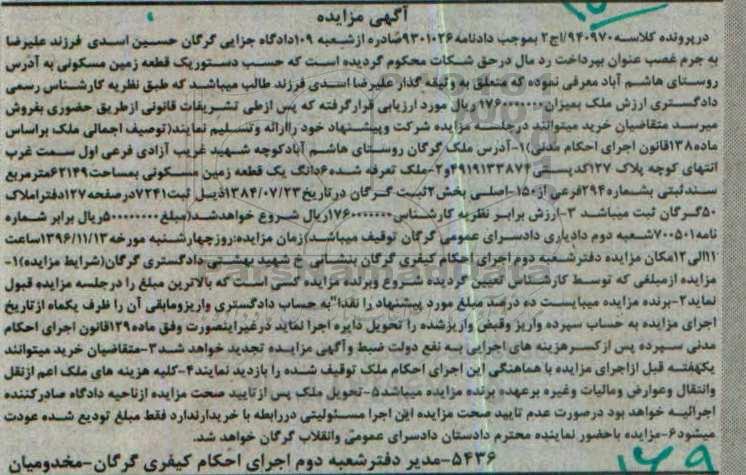 آگهی مزایده
درپرونده کلاسه ۹۴۰۹۷۰/اج۲ بموجب دادنامه ۹۳۰۱۰۲۶صادره ازشعبه ۱۰۹دادگاه جزایی گرگان حسین اسدی فرزند علیرضا
به جرم غصب عنوان بپرداخت رد مال درحق شکات محکوم گردیده است که حسب دستوریک قطعه زمین مسکونی به آدرس
روستای هاشم آباد معرفی نموده که متعلق به وثیقه گذار علیرضا اسدی فرزند طالب میباشد که طبق نظریه کارشناس رسمی
دادگستری ارزش ملک بمیزان ۱۷۶۰۰۰۰۰۰۰ریال مورد ارزیابی قرارگرفته که پس ازطی تشریفات قانونی ازطریق حضوری بفروش
میرسد متقاضیان خرید میتوانند درجلسه مزایده شرکت وپیشنهاد خود راارائه وتسلیم نمایند(توصیف اجمالی ملک براساس
ماده۱۳۸قانون اجرای احکام مدنی)۱-آدرس ملک گرگان روستای هاشم آبادکوچه شهید غریب آزادی فرعی اول سمت غرب
انتهای کوچه پلاک ۱۲۷کدپستی ۴۹۱۹۱۳۳۸۷۴و۲-ملک تعرفه شده ۶دانگ یک قطعه زمین مسکونی بمساحت۶۲۱۴۹مترمربع
سندثبتی بشماره۲۹۴فرعی از۱۵۰-اصلی بخش۲ثبت گرگان درتاریخ۱۳۸۴/۰۷/۲۳ذیل ثبت۷۲۴۱درصفحه۱۲۷دفتراملاک
۵۰گرگان ثبت میباشد ۳-ارزش برابر نظریه کارشناس۱۷۶۰۰۰۰۰۰۰ریال شروع خواهدشد(مبلغ۵۰۰۰۰۰۰۰۰ریال برابر شماره
نامه۷۰۰۵۰۱شعبه دوم دادیاری دادسرای عمومی گرگان توقیف میباشد)زمان مزایده:روزچهارشنبه مورخه۱۳۹۶/۱۱/۱۳ساعت
۱۱الی۱۲مکان مزایده دفترشعبه دوم اجرای احکام کیفری گرگان بنشانی خ شهید بهشتی دادگستری گرگان(شرایط مزایده)۱-
مزایده ازمبلغی که توسط کارشناس تعیین گردیده شروع وبرنده مزایده کسی است که بالاترین مبلغ را درجلسه مزایده قبول
نماید۲-برنده مزایده میبایست ده درصد مبلغ مورد پیشنهاد را نقدا"به حساب دادگستری واریزومابقی آن را ظرف یکماه ازتاریخ
اجرای مزایده به حساب سپرده واریز وقبض واریزشده را تحویل دایره اجرا نماید درغیراینصورت وفق ماده۱۲۹قانون اجرای احکام
مدنی سپرده پس ازکسرهزینه های اجرایی به نفع دولت ضبط وآگهی مزایده تجدید خواهد شد۳-متقاضیان خرید میتوانند
یکهفته قبل ازاجرای مزایده با هماهنگی این اجرای احکام ملک توقیف شده را بازدید نمایند۴-کلیه هزینه های ملک اعم ازنقل
وانتقال وعوارض ومالیات وغیره برعهده برنده مزایده میباشد۵-تحویل ملک پس ازتایید صحت مزایده ازناحیه دادگاه صادرکننده
اجرائیه خواهد بود درصورت عدم تایید صحت مزایده این اجرا مسئولیتی دررابطه با خریدارندارد فقط مبلغ تودیع شده عودت
میشود۶-مزایده باحضور نماینده محترم دادستان دادسرای عمومی وانقلاب گرگان خواهد شد.
۵۴۳۶-مدیر دفترشعبه دوم اجرای احکام کیفری گرگان-مخدومیان
۱۶۹